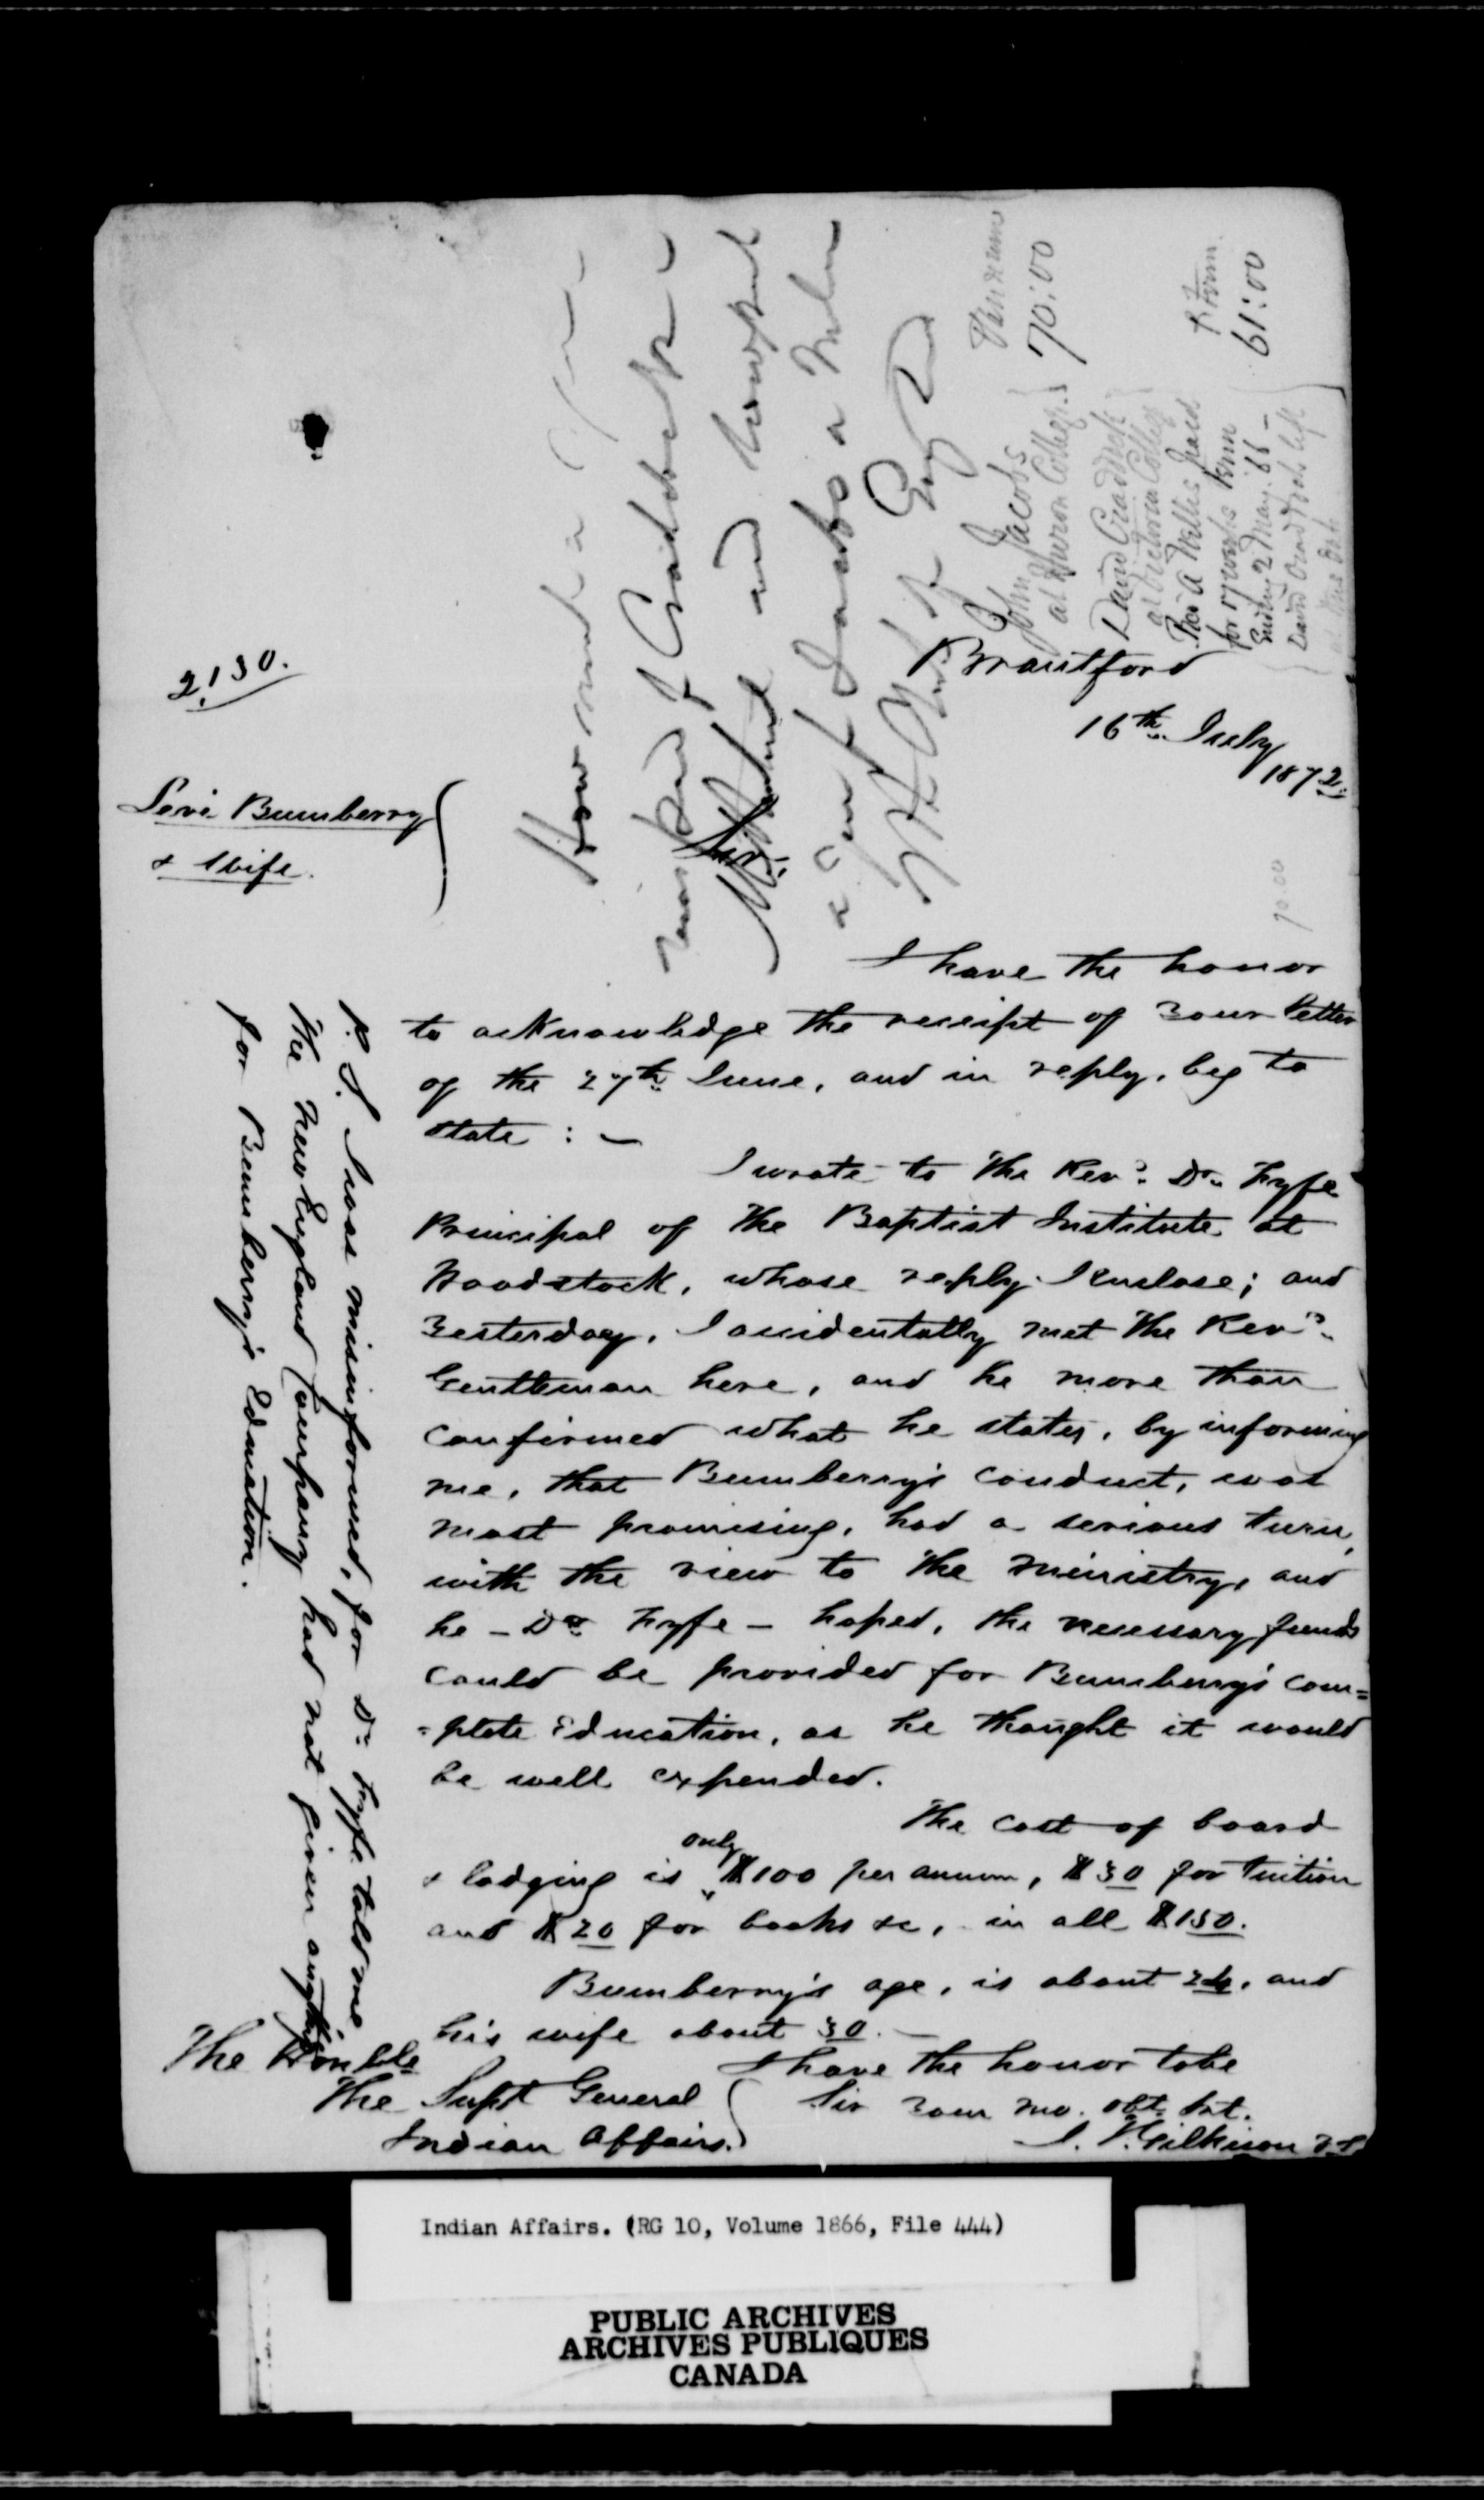 2130.
Levi Bumberry
& Wife.
How much a
was paid for Craddock
and
a Jacobs a
John Jacobs
at Huron College } 70:00
David Craddock
at Victoria College
Rev A Nelles paid
for 17 weeks
Ending 2 May '66 —
David Craddock left
61:00
70.00
Brantford
16th July
1872.
Sir,
I have the honor
to acknowledge the receipt of Your letter
of the 27th June, and in reply, beg to
state : —
I wrote to the Revd. Dr. Fyfe
Principal of the Baptist Institute at
Woodstock, whose reply I enclose; and
Yesterday, I accidentally met the Revd.
Gentleman here, and he more than
confirmed what he states, by informing
me, that Bumberry's conduct, was
most promising, had a serious turn,
with the view to the Ministry, and
he — Dr. Fyfe — hoped, the necessary funds
could be provided for Bumberry's com=
=plete Education, as he thought it would
be well expended.
The cost of board
& lodging is only $100 per annum, $30 for Tuition
and $20 for books &c, in all $150.
Bumberry's age, is about 24, and
his wife about 30. —
I have the honor to be
Sir Your mo. obt. Svt.
J. T. Gilkison
The Honble
The Supt General
Indian Affairs.
P.S. I was misinformed, for Dr. Fyfe told me
The New England Company had not given anything
for Bumberry's Education.
Indian Affairs. (RG 10, Volume 1866, File 444)
PUBLIC ARCHIVES
ARCHIVES PUBLIQUES
CANADA